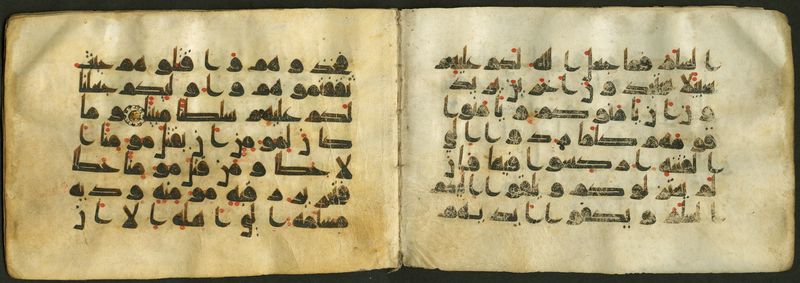 السلم فما جعل الله لكم عليهم
سبيلا ستجدون اخرين يريد
ون ان يامنوكم ويامنوا
قومهم كلما ردوا الى
الفتنة اركسوا فيها فان
لم يعتزلوكم ويلقوا اليكم
السلم ويكفوا ايديهم
فخذوهم واقتلوهم حيث
ثقفتموهم واولئكم جعلنا
لكم عليهم سلطنا مبينا وما
كان لمومن ان يقتل مومنا ا
لا خطا ومن قتل مومنا خطا
فتحرير رقبة مومنة ودية
مسلمة الى اهله الا ان